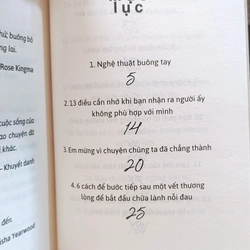 MỤC
LỤC
1. Nghệ thuật buông tay
5
2. 13 điều cần nhớ khi bạn nhận ra người ấy
không phù hợp với mình
14
3. Em mừng vì chuyện chúng ta đã chẳng thành
20
4. 6 cách để bước tiếp sau một vết thương
lòng để bắt đầu chữa lành nỗi đau
25
buông bỏ
lai.
Rose Kingma
cuộc sống của
ao chuyện đã
Khuyết danh
đến.
isha Yearwood